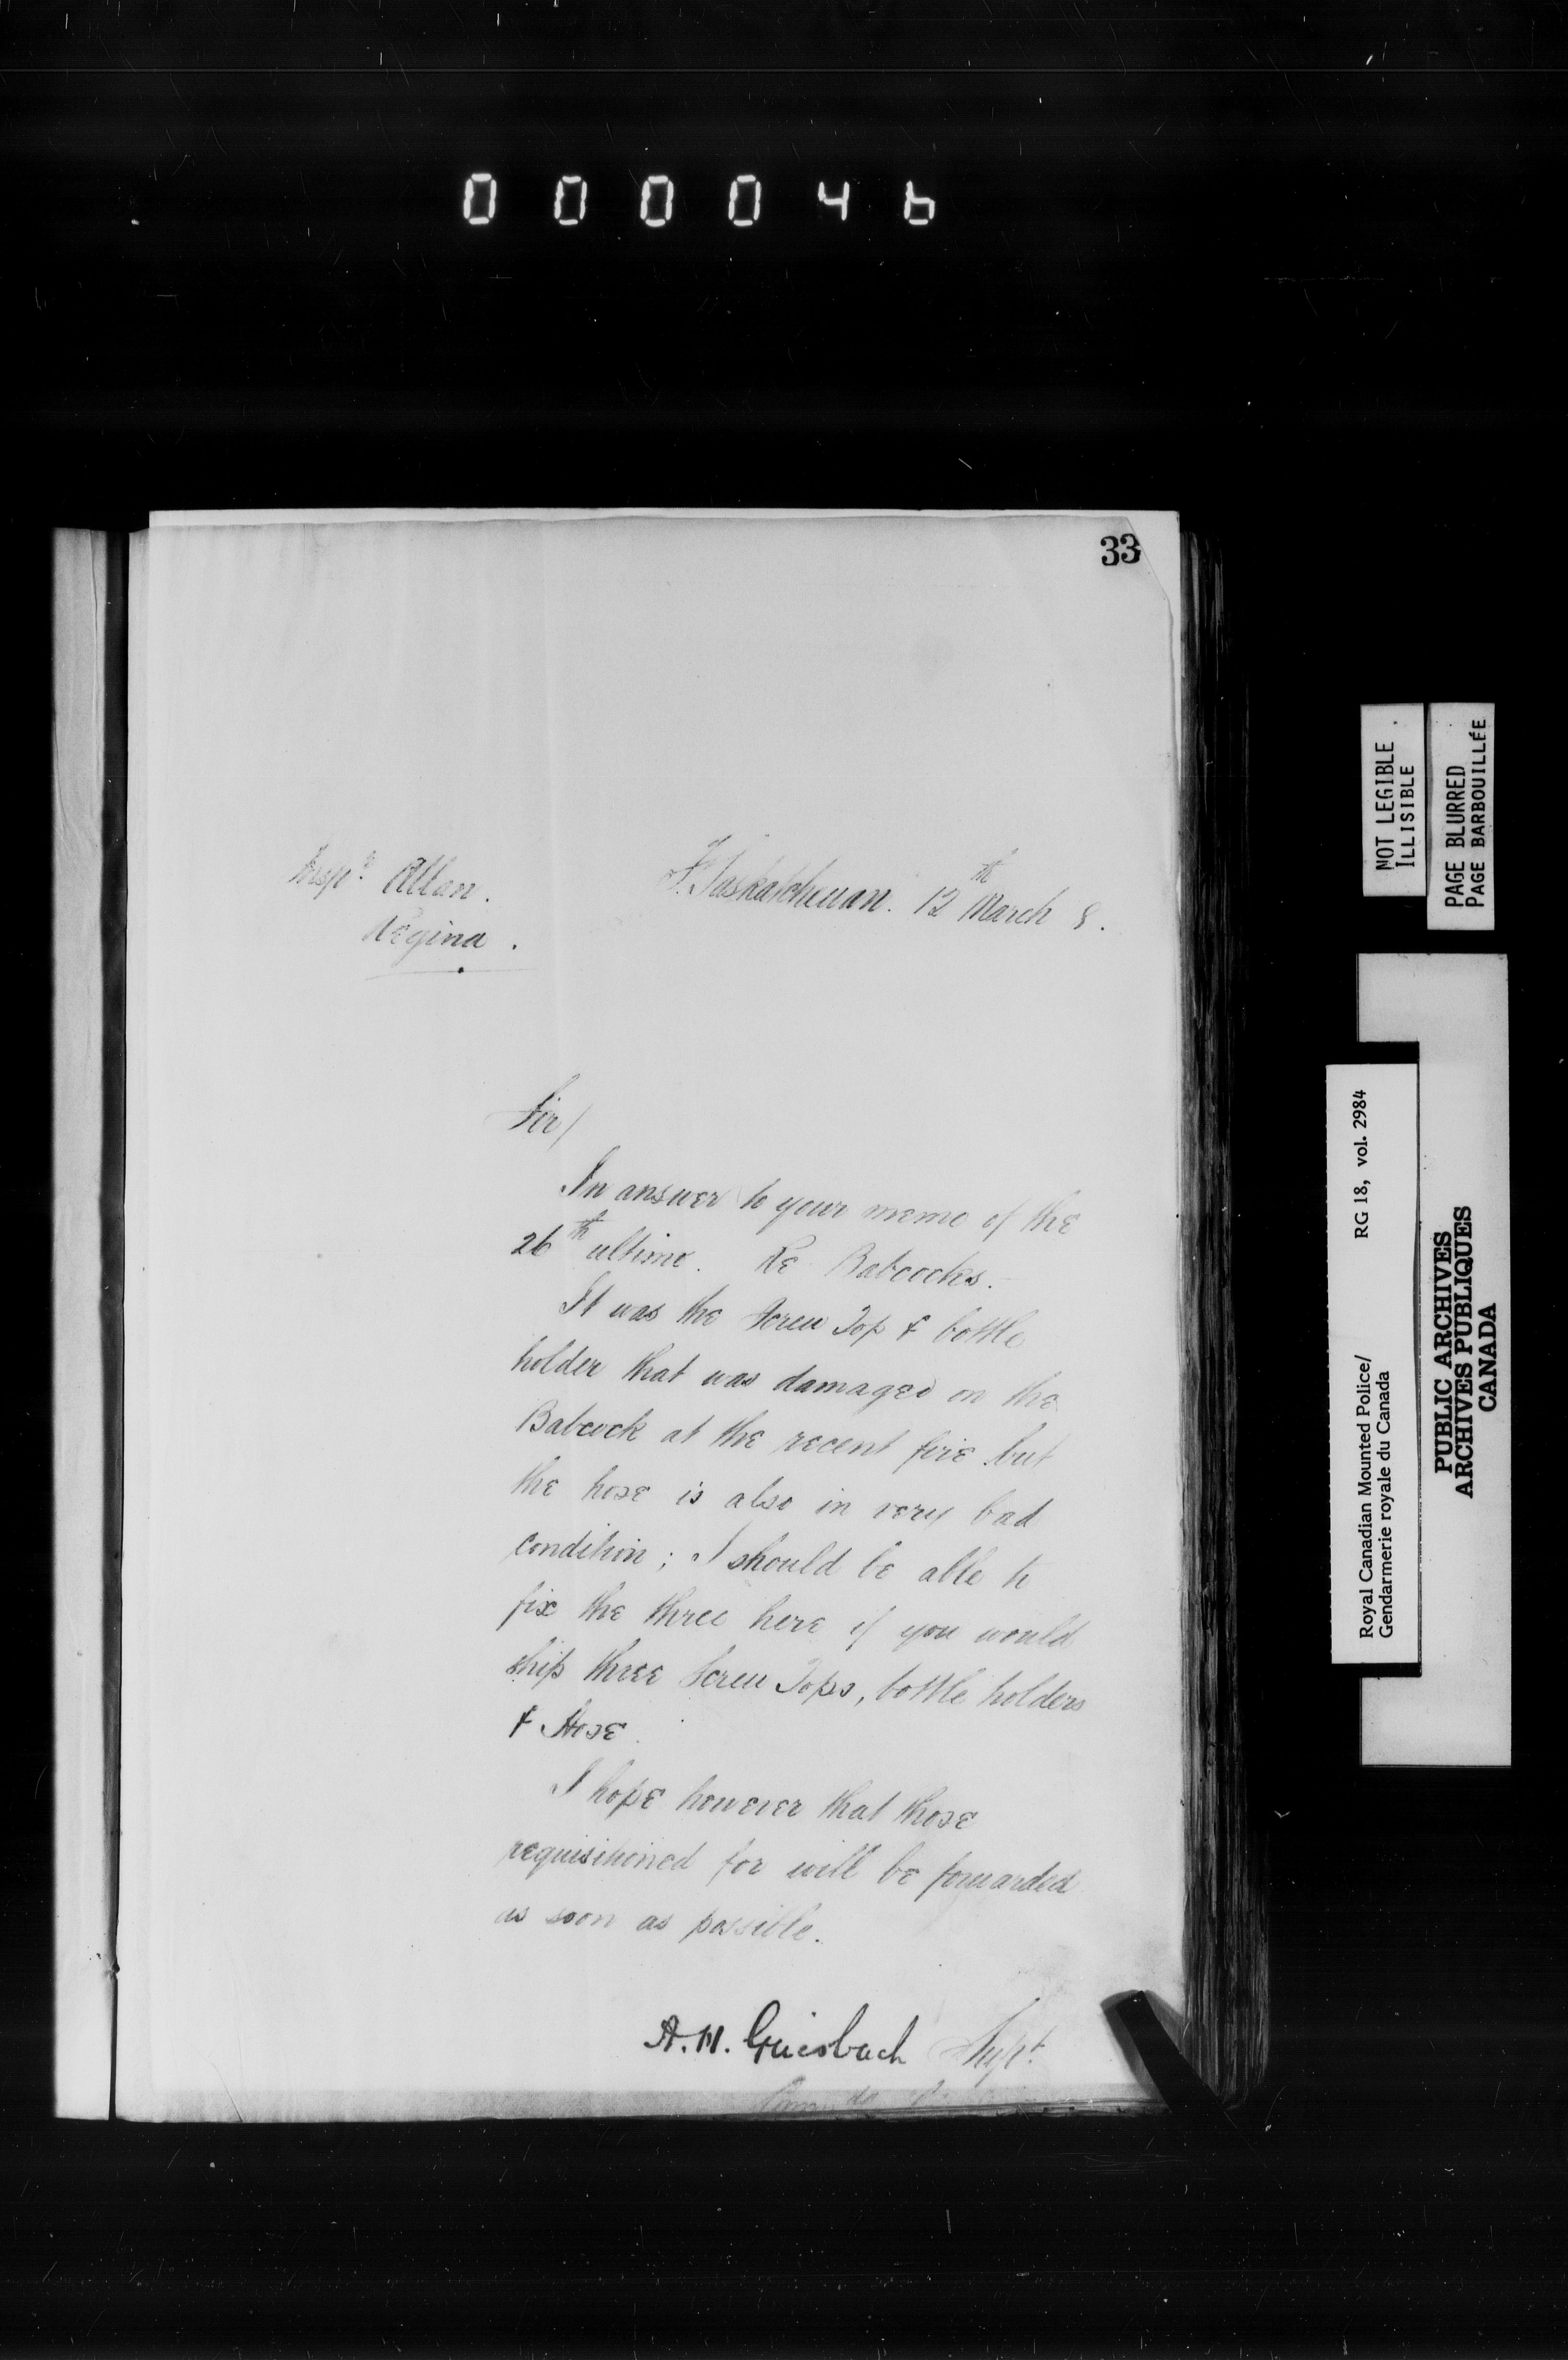 000046
33
Inspr. Allan.
Regina.
F. Saskatchewan. 12th March 8.
Sir/
In answer to your memo of the
26th ultimo. Re Babcocks.
It was the Screw Top & bottle
holder that was damaged on the
Babcock at the recent fire but
the hose is also in very bad
condition; I should be able to
fix the three here if you would
ship three Screw Tops, bottle holders
& Hose.
I hope however that those
requisitioned for will be forwarded
as soon as possible.
A.H. Griesbach Supt.
NOT LEGIBLE
ILLISIBLE
PAGE BLURRED
PAGE BARBOUILLÉE
Royal Canadian Mounted Police/ RG 18, vol. 2984
Gendarmerie royale du Canada
PUBLIC ARCHIVES
ARCHIVES PUBLIQUES
CANADA